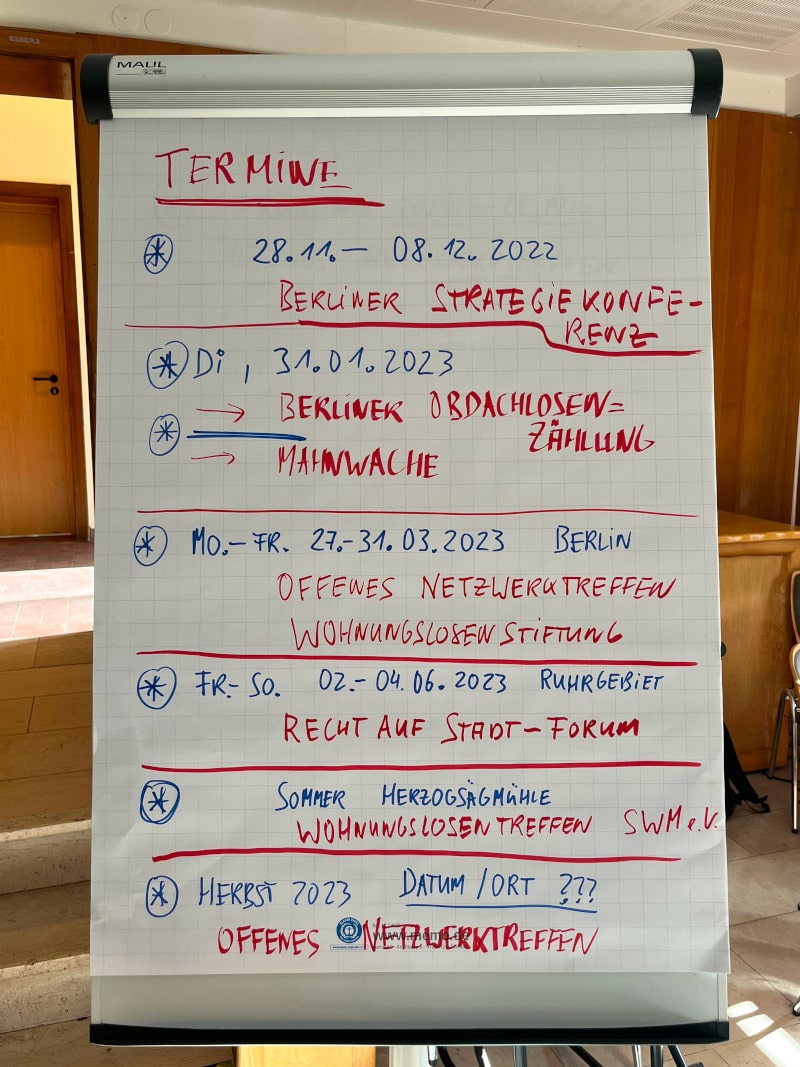 MAUL
TERMINE
28.11.– 08.12.2022
BERLINER STRATEGIEKONFE-
RENZ
Di, 31.01.2023
→ BERLINER OBDACHLOSEN=
ZÄHLUNG
→ MAHNWACHE
MO.–FR. 27.–31.03.2023 BERLIN
OFFENES NETZWERKTREFFEN
WOHNUNGSLOSENSTIFTUNG
FR.–SO. 02.–04.06.2023 RUHRGEBIET
RECHT AUF STADT–FORUM
SOMMER HERZOGSÄGMÜHLE
WOHNUNGSLOSENTREFFEN SWM e.V.
HERBST 2023 DATUM/ORT ???
OFFENES NETZWERKTREFFEN
www.memo.de